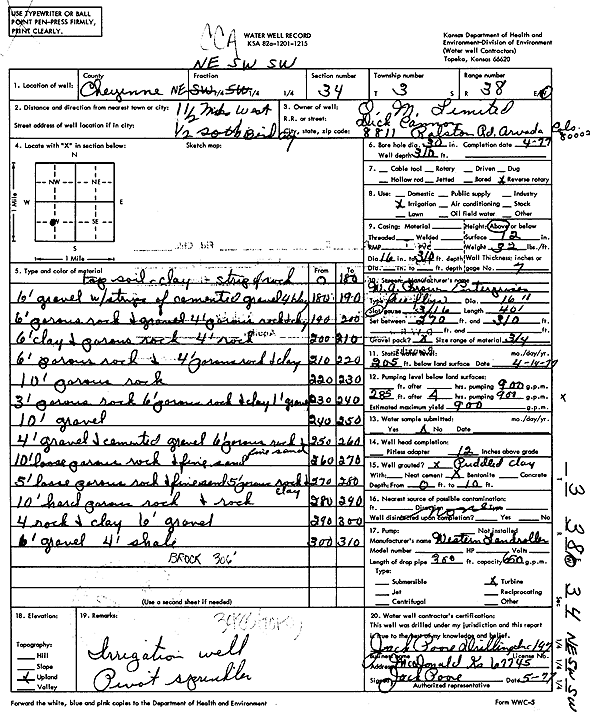 USE TYPEWRITER OR BALL
POINT PEN-PRESS FIRMLY,
PRINT CLEARLY.
WATER WELL RECORD
KSA 82a-1201-1215
Kansas Department of Health and
Environment-Division of Environment
(Water well Contractors)
Topeka, Kansas 66620
NE SW SW
1. Location of well: County Cheyenne Fraction NE 1/4 SW 1/4 SW 1/4 Section number 34 Township number T 3 S Range number R 38 E/W
2. Distance and direction from nearest town or city: 1 1/2 Miles West
Street address of well location if in city: 1/2 South
3. Owner of well: Limited
R.R. or street: Dick Cannon
City, state, zip code: 8811 Ralston Rd. Arvada Colo. 80002
4. Locate with "X" in section below:
Sketch map:
N
NW NE
W E
SW SE
S
1 Mile
1 Mile
6. Bore hole dia. 30 in. Completion date 4-77
Well depth 310 ft.
7. Cable tool Rotary Driven Dug
Hollow rod Jetted Bored X Reverse rotary
8. Use: Domestic Public supply Industry
X Irrigation Air conditioning Stock
Lawn Oil field water Other
9. Casing: Material Height: Above or below
Threaded Welded Surface 12 in.
RMP PVC Weight 32 lbs./ft.
Dia. 16 in. to 310 ft. depth Wall Thickness: inches or
Dia. in. to ft. depth gage No.
10. Screen: Manufacturer's name
Type Dia. 16"
Slot/gauze 3/16 Length 40'
Set between 270 ft. and 310 ft.
ft. and ft.
Gravel pack? X Size range of material 3/4
11. Static water level: mo./day/yr.
205 ft. below land surface Date 4-14-77
12. Pumping level below land surfaces:
ft. after hrs. pumping 900 g.p.m.
285 ft. after 4 hrs. pumping 900 g.p.m.
Estimated maximum yield 900 g.p.m.
13. Water sample submitted: mo./day/yr.
Yes X No Date
14. Well head completion:
Pitless adapter 12 Inches above grade
15. Well grouted? X Puddled clay
With: Neat cement X Bentonite Concrete
Depth: From 0 ft. to 10 ft.
16. Nearest source of possible contamination:
ft. Direction Type
Well disinfected upon completion? Yes No
17. Pump: Not installed
Manufacturer's name Western Landroller
Model number HP Volts
Length of drop pipe 300 ft. capacity 650 g.p.m.
Type:
Submersible X Turbine
Jet Reciprocating
Centrifugal Other
5. Type and color of material From To
top soil - clay - strip of rock 0 180
6' gravel w/strips of cemented gravel 180 190
6' porous rock & gravel 4' porous rock & clay 190 200
6' clay & porous rock 4' rock 200 210
6' porous rock & 4' porous rock & clay 210 220
10' porous rock 220 230
3' porous rock 6' porous rock & clay 1' gravel 230 240
10' gravel 240 250
4' gravel & cemented gravel 6' porous rock & fine sand 250 260
10' loose porous rock & fine sand 260 270
5' loose porous rock & fine sand 5' porous rock & clay 270 280
10' hard porous rock & rock 280 290
4 rock & clay 6' gravel 290 300
6' gravel 4' shale 300 310
BROCK 306'
(Use a second sheet if needed)
18. Elevation:
Topography:
Hill
Slope
X Upland
Valley
19. Remarks:
Irrigation well
Pivot sprinkler
20. Water well contractor's certification:
This well was drilled under my jurisdiction and this report
is true to the best of my knowledge and belief.
Jack Poore Drilling Inc 147
Business name License No.
Address McDonald Ks 67745
Signed Jack Poore Date 5-77
Authorized representative
Forward the white, blue and pink copies to the Department of Health and Environment
Form WWC-5
3 38W 34 NE SW SW
T R Sec 1/4 1/4 1/4